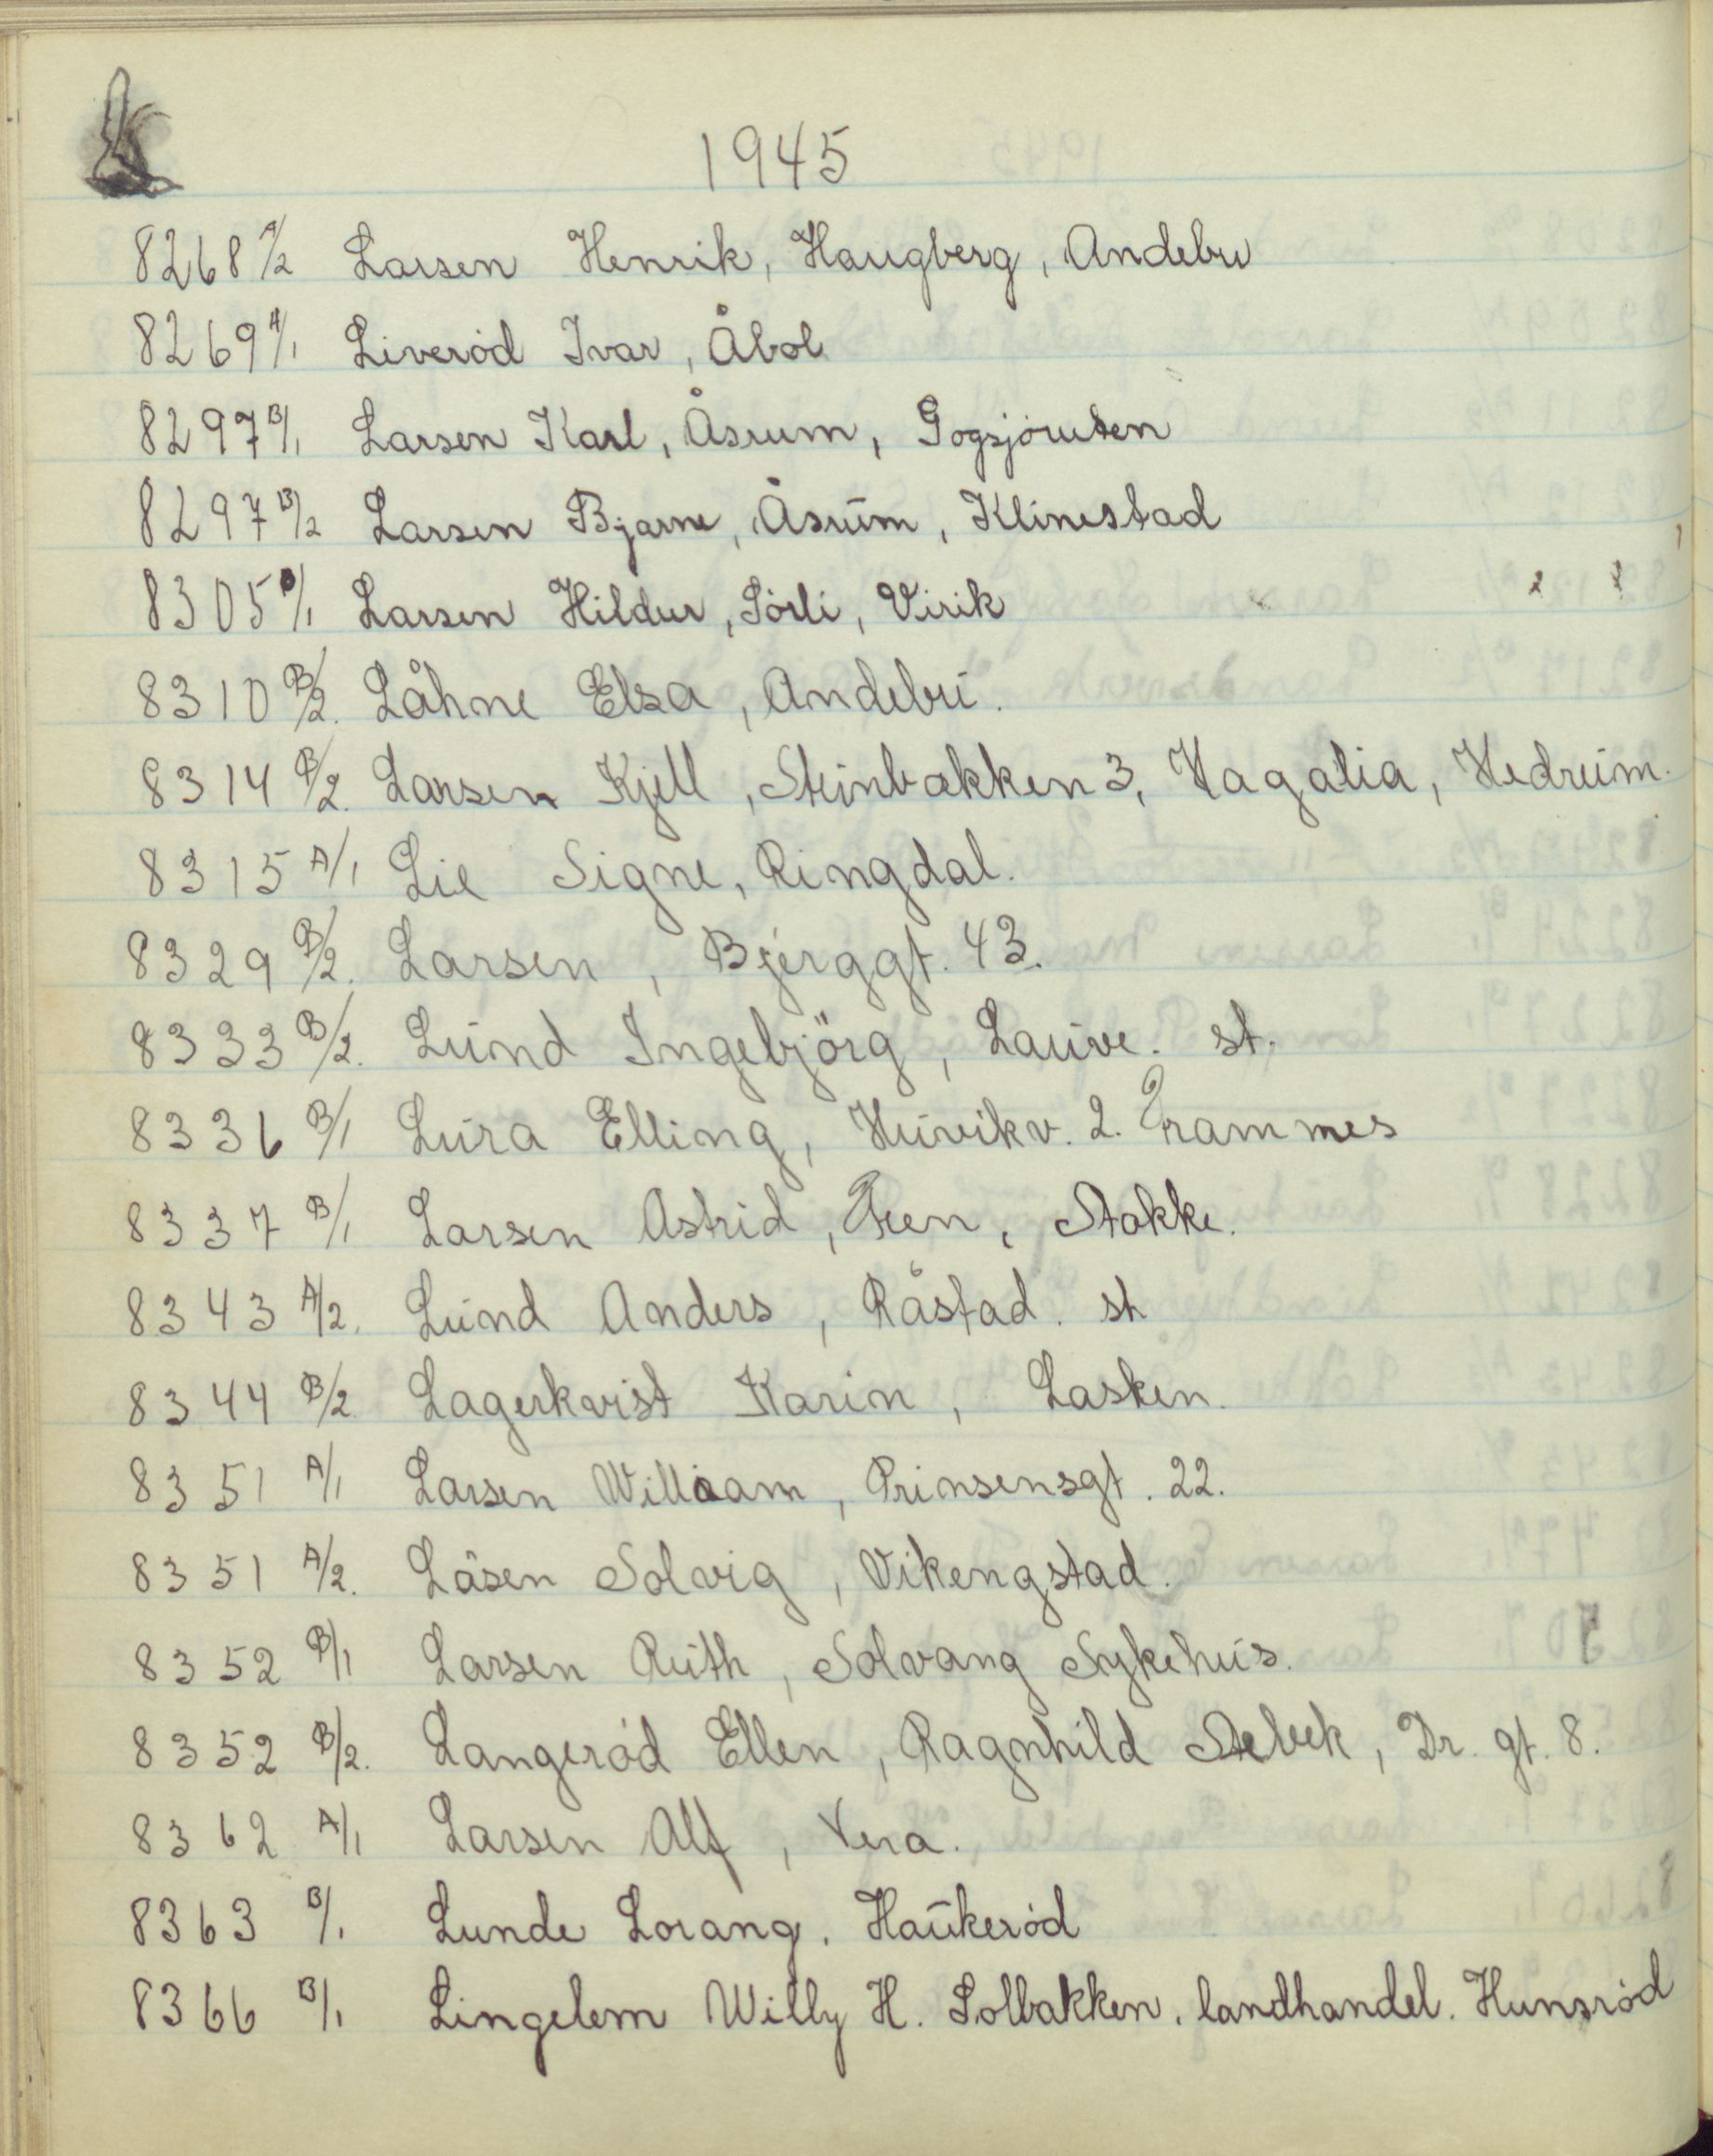 1945
8268 A/2 Larsen Henrik, Haugberg, Andebu
8269 A/1 Liveród Ivar, Åbol
8297 B/1 Larsen Karl, Åsrum, Gogsjóruten
8297 B/2 Larsen Bjarne, Åsrum, Klinestad
8305 B/1 Larsen Hildur, Sórli, Virik
8310 B/2. Låhne Elsa, Andebu.
8314 B/2. Larsen Kjell, Steinbakken 3, Hagalia, Hedrum.
8315 A/1 Lie Signe, Ringdal.
8329 B/2. Larsen, Bjerggt. 43.
8333 B/2. Lund Ingebjörg, Lauve. st.
8336 B/1 Lura Elling, Huvikv. 2. Framnes
8337 B/1 Larsen Astrid, Fen, Stokke.
8343 A/2. Lund Anders, Råstad. st
8344 B/2 Lagerkvist Karin, Lasken.
8351 A/1 Larsen William, Prinsensgt. 22.
8351 A/2. Låsen Solvig, Vikengstad.
8352 B/1 Larsen Ruth, Solvang Sykehus.
8352 B/2. Langeród Ellen, Ragnhild Dr. gt. 8.
8362 A/1 Larsen Alf, Vera.
8363 B/1. Lunde Lorang. Haukeród
8366 B/1 Lingelem Willy H. Solbakken, landhandel. Hunsród